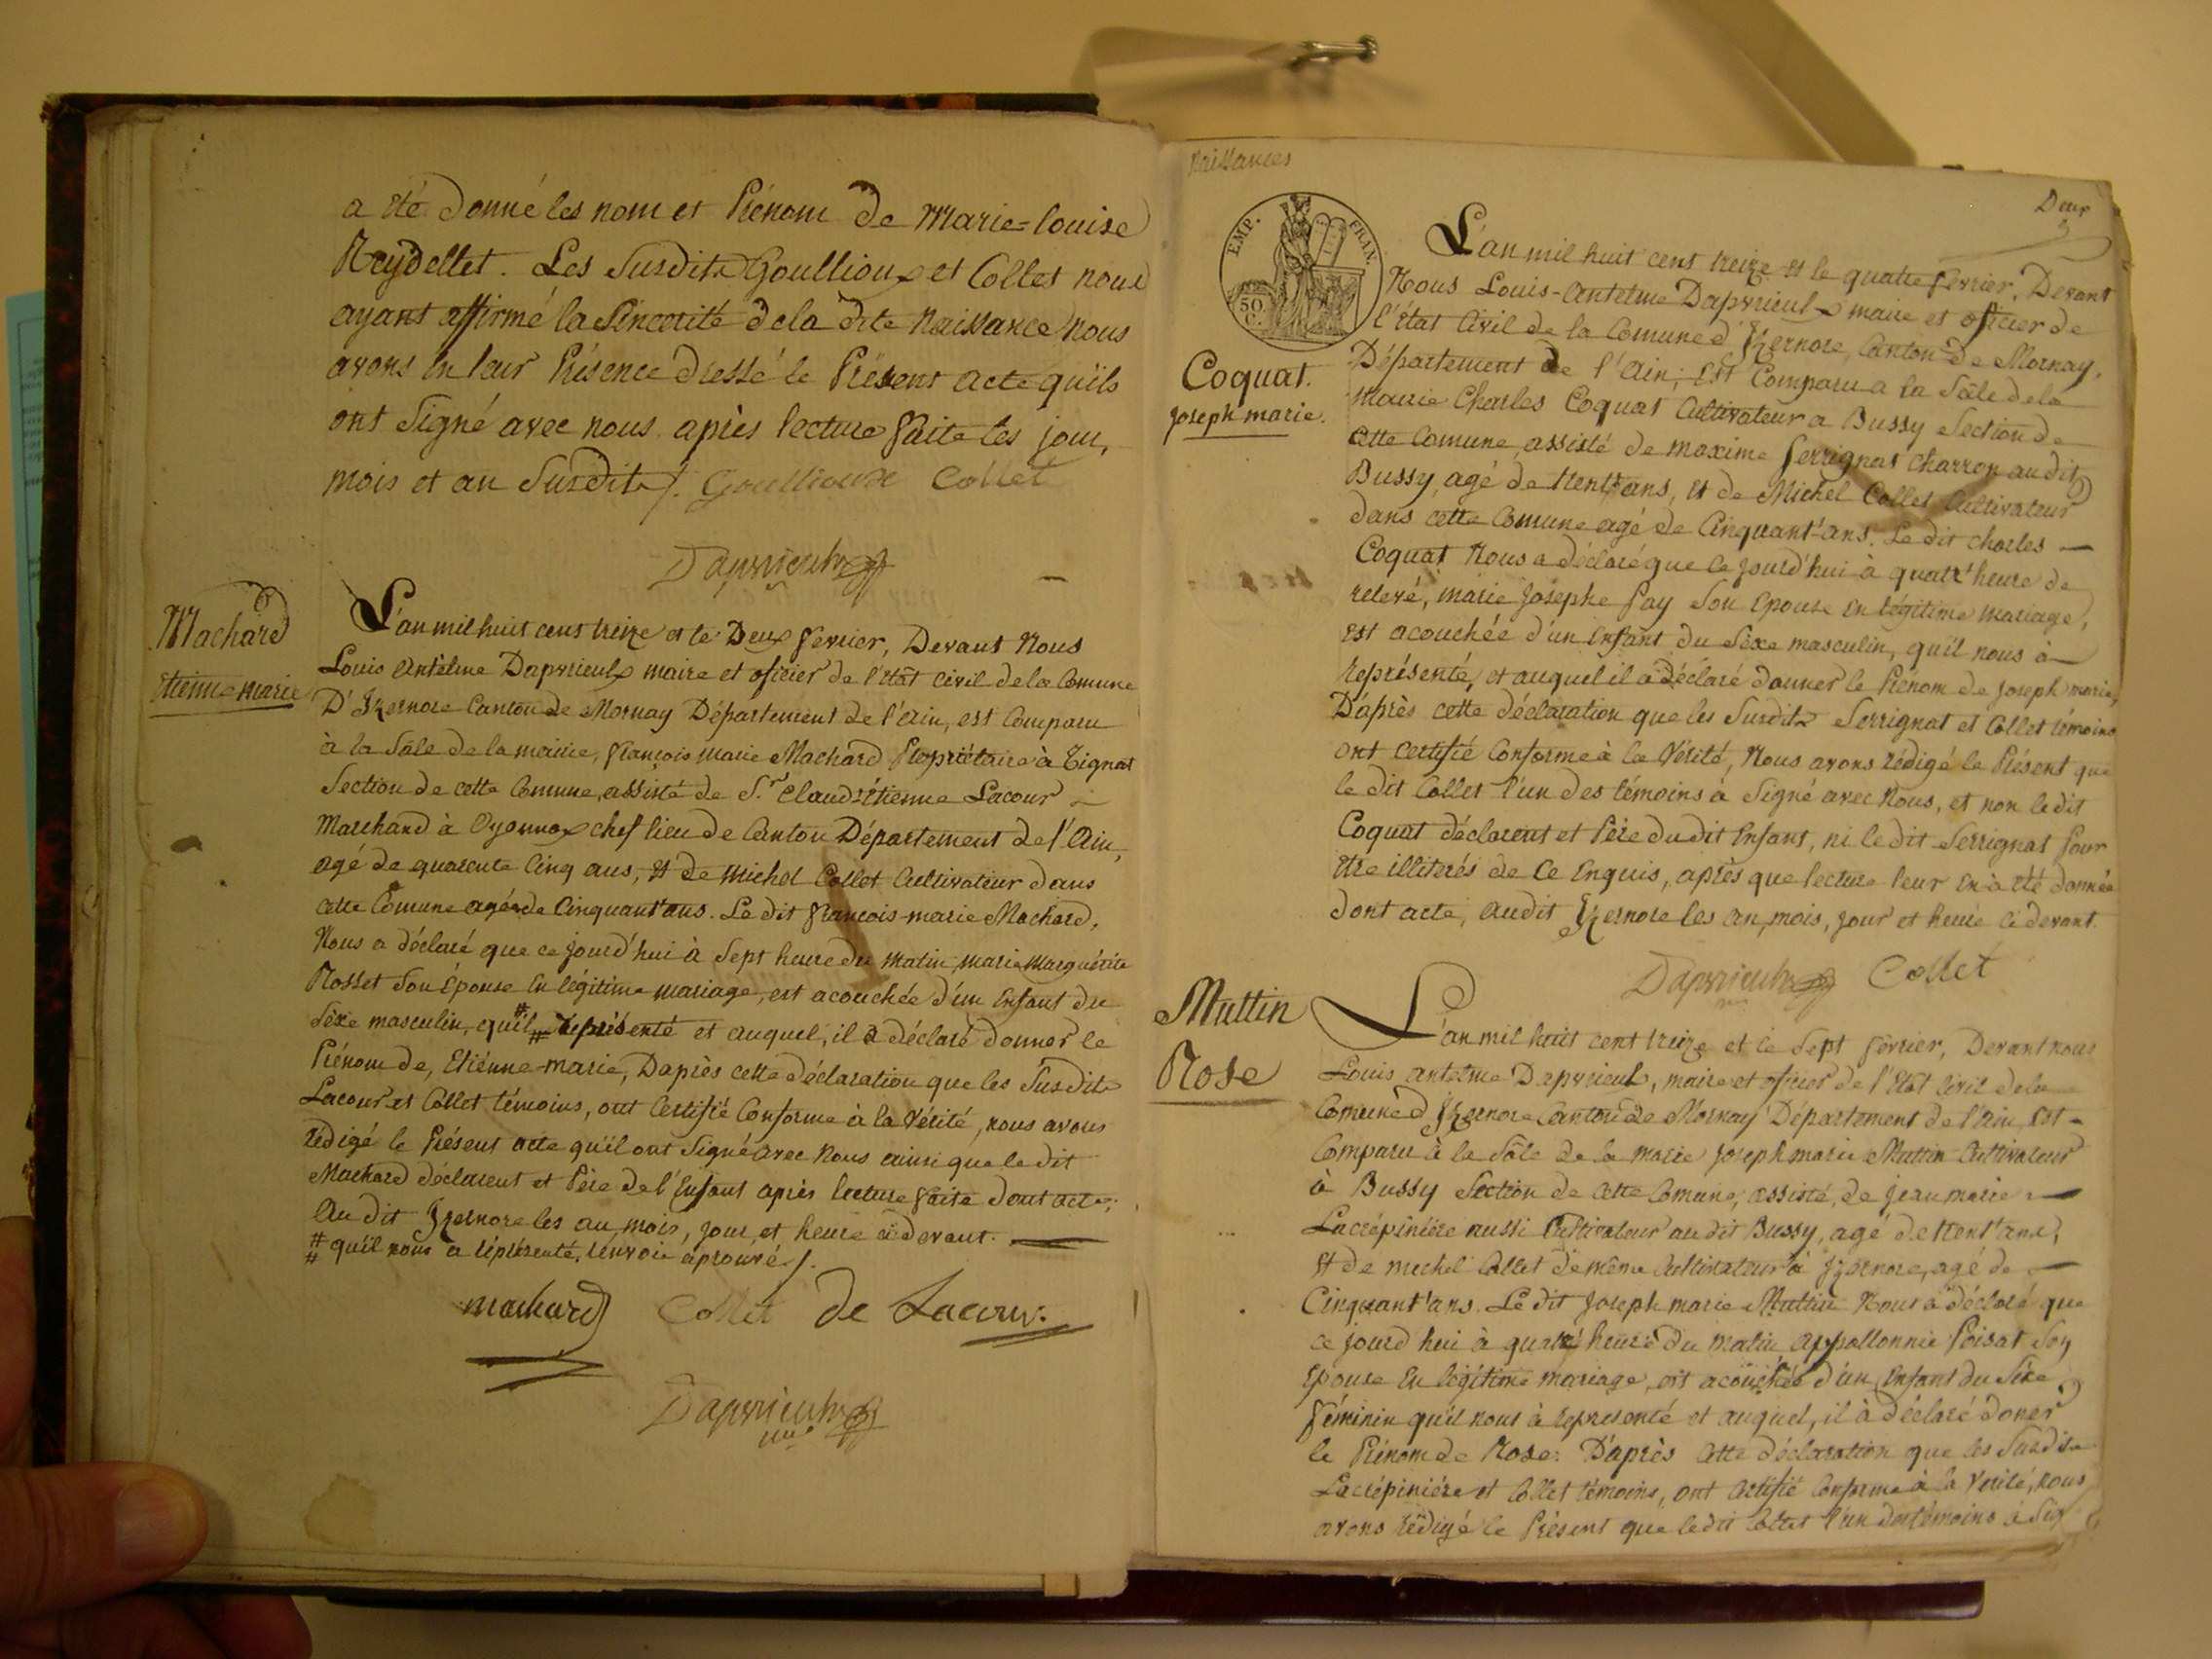 a été donné les nom et Prénom de Marie=louise
Reydellet. Les Susdits Goullioux et Collet nous
ayant affirmé la Sincerité de la dite Naissance nous
avons en leur Présence dressé le Présent acte qu'ils
ont Signé avec nous après lecture faite les jour,
mois et an Susdits. Goullioux Collet
Machard
Etienne marie
L'an mil huit cent treize et le Deux fevrier, Devant Nous
Louis Antelme Daprrieulx maire et oficier de l'état Civil de la Comune
D'Izernore Canton de Mornay Département de l'Ain, est Comparu
à la Sâle de la mairie, françois marie Machard Propriétaire à Tignat
Section de cette Comune, assisté de S.r Claud'Etienne Lacour
Marchand à Oyonnax chef lieu de Canton Département de l'Ain,
agé de quarente Cinq ans, et de Michel Collet Cultivateur dans
cette Comune agé de Cinquant'ans. Le dit francois-marie Machard,
Nous a déclaré que ce jourd'hui à Sept heure du Matin, marie Marguérite
Rosset Son Epouse en légitime mariage, est acouchée d'un Enfant du
Séxe masculin, qu'il # représenté et auquel, il a déclaré donner le
Prénom de, Etiénne-marie, Daprès cette déclaration que les Susdits
Lacour et Collet témoins, ont Certifié Conforme à la Vérité, nous avons
rédigé le Présent acte qu'il ont Signé avec Nous ainsi que le dit
Machard déclarent et Père de l'Enfant après lecture faite dont acte;
Au dit Izernore les an, mois, jour, et heure cidevant.
# qu'il nous a répresenté. renvoie aprouvé
machard Collet de Lacour.
Naissances
Deux
EMP. FRAN.
50 C.
Coquat.
Joseph marie.
L'an mil huit cent treize et le quatre fevrier, Devant
Nous Louis-Antelme Daprrieulx maire et oficier de
l'état Civil de la Comune d'Izernore, Canton de Mornay,
Département de l'Ain; Est Comparu a la Sâle de la
Mairie Charles Coquat Cultivateur a Bussy Section de
Cette Comune, assisté de maxime Serrignat Charron au dit
Bussy, agé de trent'ans, et de Michel Collet Cultivateur
dans cette Comune agé de Cinquant'ans. Le dit Charles
Coquat Nous a déclaré que ce jourd'hui à quatr'heure de
relevé, marie Josephe Fay Son Epouse en légitime mariage,
est acouchée d'un Enfant du Séxe masculin, qu'il nous à
représenté, et auquel il a déclaré donner le Prénom de Joseph marie,
D'après cette déclaration que les Susdits Serrignat et Collet témoins
ont certifié Conforme à la Vérité, Nous avons rédigé le Présent que
le dit Collet l'un des témoins à Signé avec Nous, et non le dit
Coquat déclarent et Père du dit Enfant, ni le dit Serrignat Pour
etre illiterés de Ce Enquis, après que lecture leur en à eté donnée
dont acte, audit Izernore les an, mois, jour et heure cidevant.
Collet
Muttin
Rose
L'an mil huit cent treize et le Sept fevrier, Devant nous
Louis antelme Daprrieulx, maire et oficier de l'Etat Civil de la
Comune d'Izernore Canton de Mornay Département de l'Ain, Est
Comparu à la Sâle de la mairie Joseph marie Muttin Cultivateur
à Bussy Section de Cette Comune, assisté, de Jean marie
Lacrépiniére aussi Cultivateur audit Bussy, agé de trent'ans,
Et de michel Collet de même Cultivateur à Izernore, agé de
Cinquant'ans. Le dit Joseph marie Muttin Nous a déclaré que
ce jourd'hui à quatre heure du matin Appollonnie Poisat Son
Epouse En légitime mariage, est acouchée d'un Enfant du Séxe
féminin qu'il nous à representé et auquel, il à déclaré doner
le Prénom de Rose: D'après Cette déclaration que les Susdits
Lacrépiniére et Collet témoins, ont Certifié Conforme à la Vérité, nous
avons rédigé le Présent que ledit Collet l'un des témoins à Sig